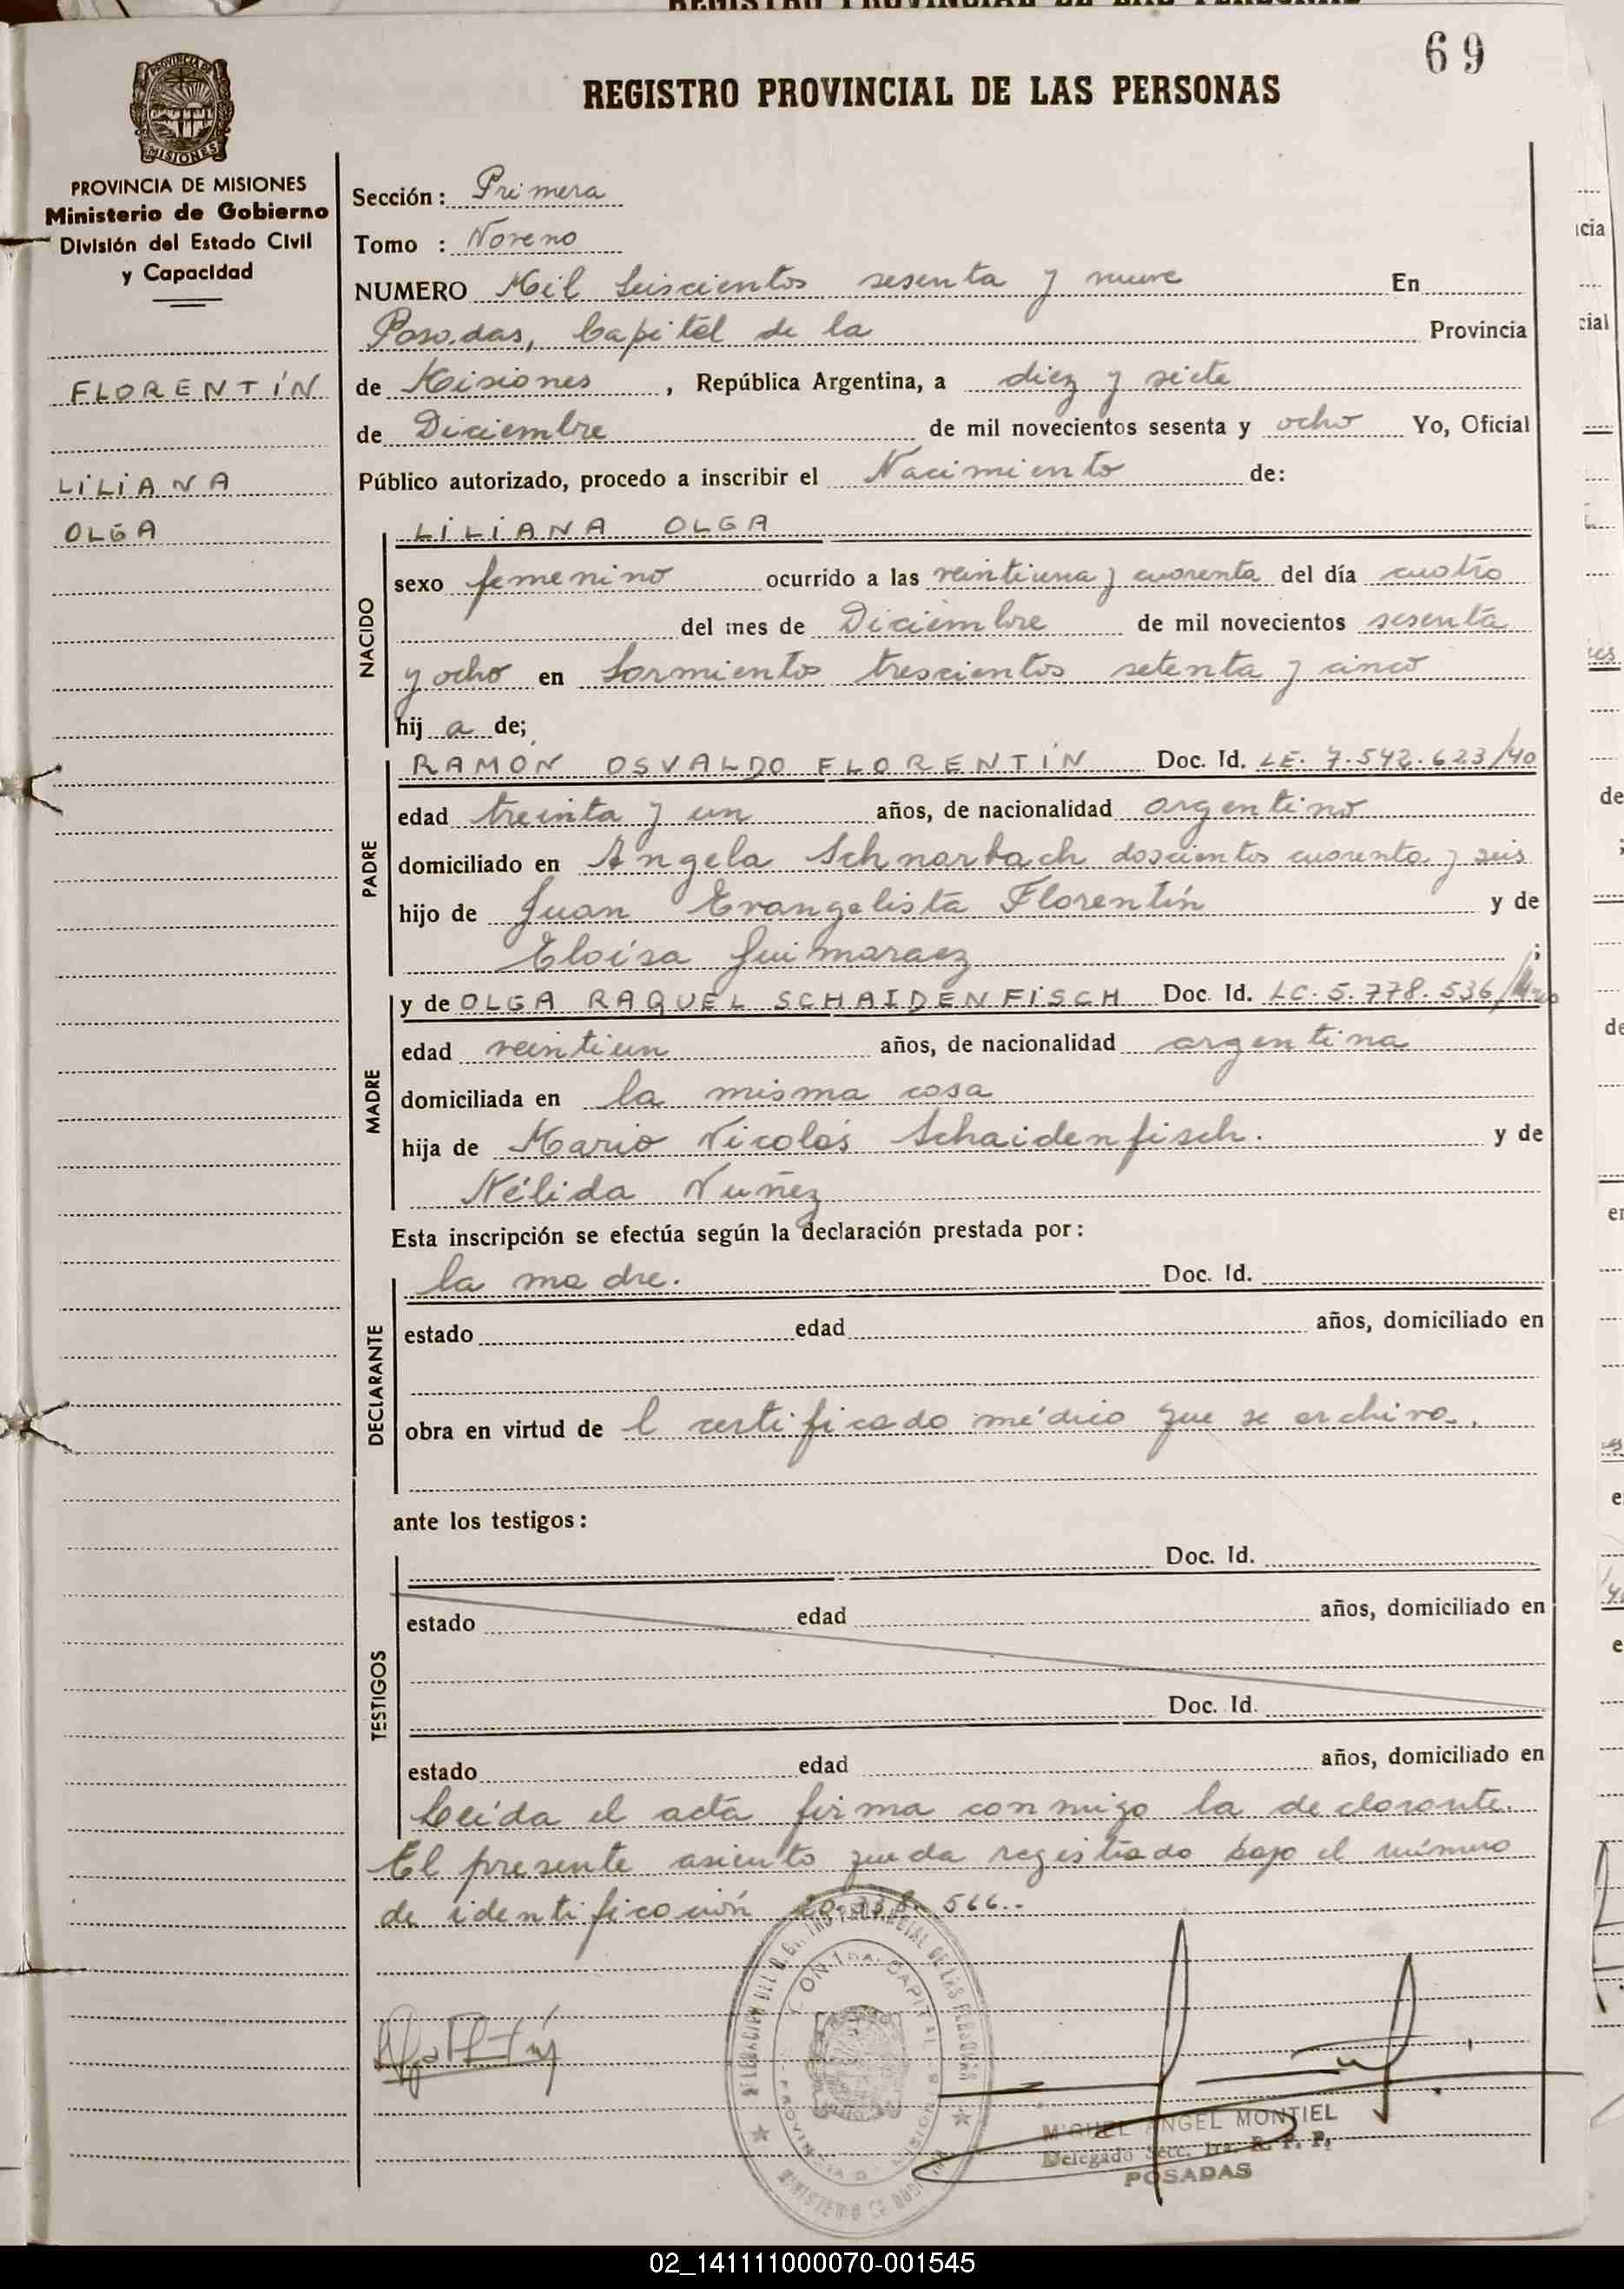 69
REGISTRO PROVINCIAL DE LAS PERSONAS
PROVINCIA DE
MISIONES
PROVINCIA DE MISIONES
Ministerio de Gobierno
División del Estado Civil
y Capacidad
FLORENTÍN
LILIANA
OLGA
Sección: Primera
Tomo : Noveno
NUMERO Mil Seiscientos sesenta y nueve En
Posadas, Capital de la Provincia
de Misiones, República Argentina, a diez y siete
de Diciembre de mil novecientos sesenta y ocho Yo, Oficial
Público autorizado, procedo a inscribir el Nacimiento de:
NACIDO
LILIANA OLGA
sexo femenino ocurrido a las veintiuna y cuarenta del día cuatro
del mes de Diciembre de mil novecientos sesenta
y ocho en Sarmientos trescientos setenta y cinco
hij a de;
PADRE
RAMÓN OSVALDO FLORENTÍN Doc. Id. LE. 7.542.623/40
edad treinta y un años, de nacionalidad argentino
domiciliado en Angela Schnarbach doscientos cuarenta y seis
hijo de Juan Evangelista Florentín y de
Eloísa Guimaraez ;
MADRE
y de OLGA RAQUEL SCHAIDENFISCH Doc. Id. LC. 5.778.536/
edad veintiun años, de nacionalidad argentina
domiciliada en la misma casa
hija de Mario Nicolás Schaidenfisch. y de
Nélida Nuñez
Esta inscripción se efectúa según la declaración prestada por:
DECLARANTE
la madre. Doc. Id.
estado edad años, domiciliado en
obra en virtud de l certificado médico que se archiva.
ante los testigos:
TESTIGOS
Doc. Id.
estado edad años, domiciliado en
Doc. Id.
estado edad años, domiciliado en
Leída el acta firma conmigo la declarante.
El presente asiento queda registrado bajo el número
de identificación 566..
MIGUEL ANGEL MONTIEL
Delegado Secc. 1ra. R. P. P.
POSADAS
02_141111000070-001545